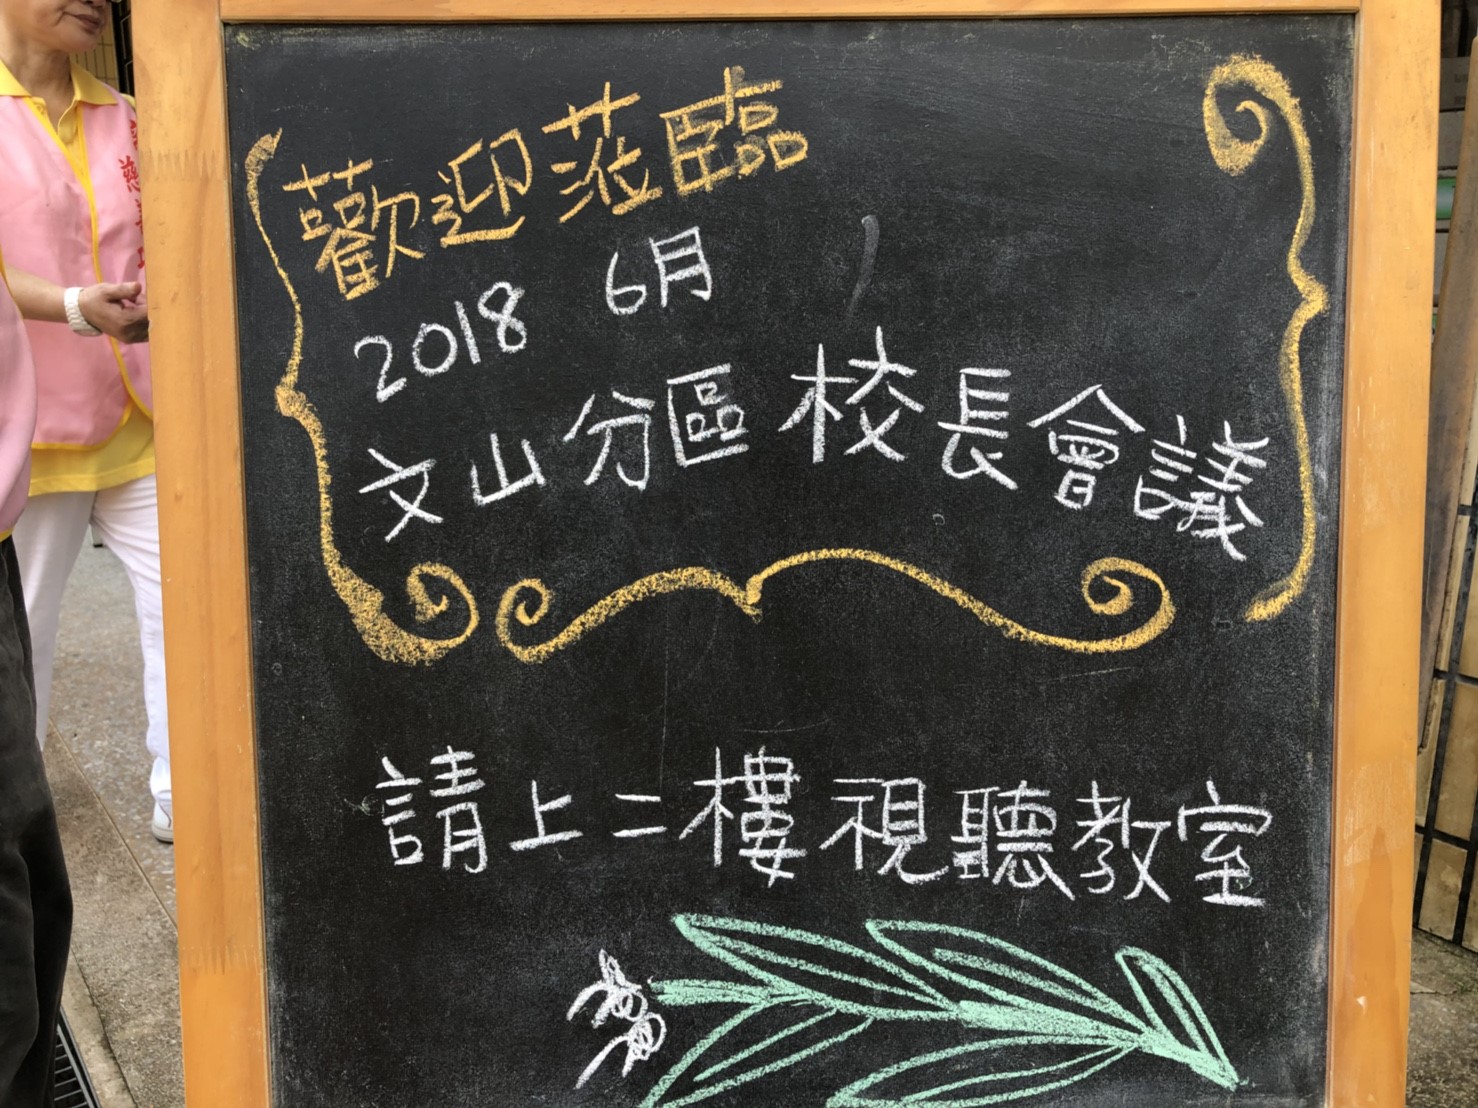 歡迎蒞臨
2018 6月
文山分區校長會議
請上二樓視聽教室